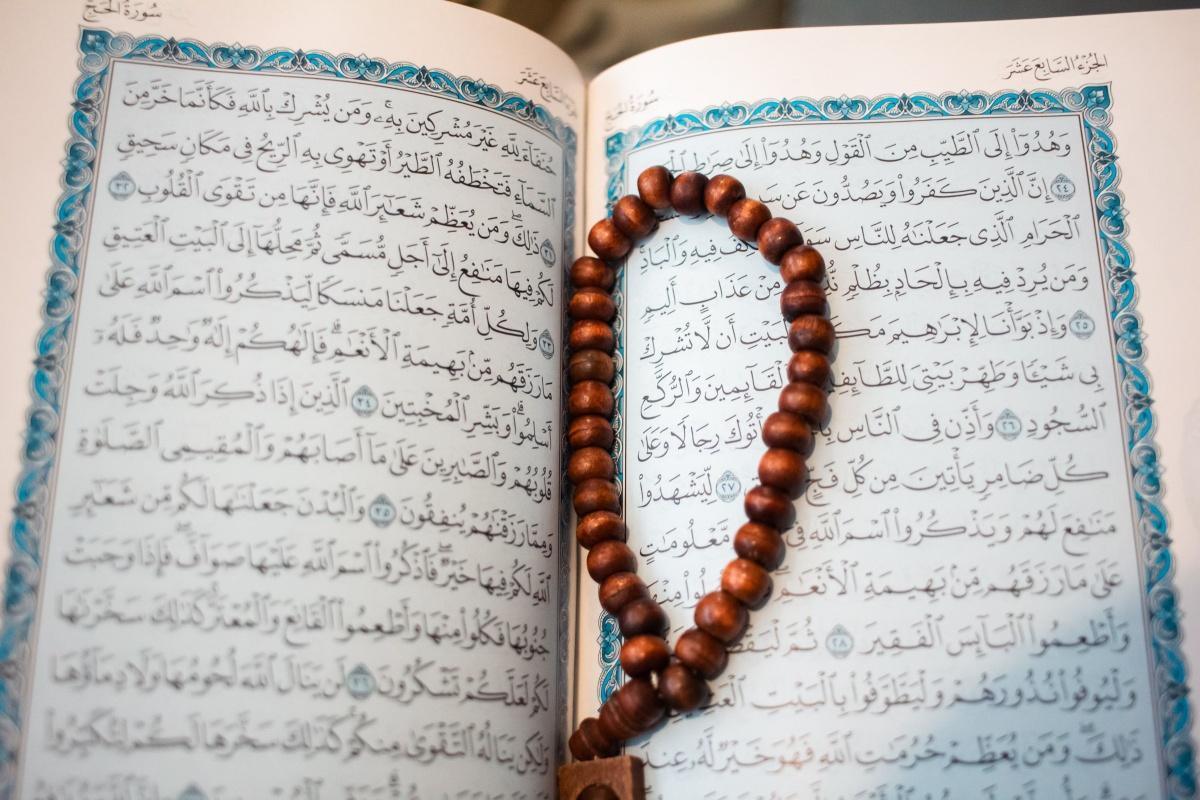 الجُزْءُ السَّابِعَ عَشَرَ سُورَةُ الحَجِّ
وَهُدُوٓاْ إِلَى ٱلطَّيِّبِ مِنَ ٱلْقَوْلِ وَهُدُوٓاْ إِلَىٰ صِرَٰطِ
٢٤ إِنَّ ٱلَّذِينَ كَفَرُواْ وَيَصُدُّونَ عَن
ٱلْحَرَامِ ٱلَّذِى جَعَلْنَٰهُ لِلنَّاسِ فِيهِ وَٱلْبَادِ
وَمَن يُرِدْ فِيهِ بِإِلْحَادِۭ بِظُلْمٍ مِنْ عَذَابٍ أَلِيمٍ
٢٥ وَإِذْ بَوَّأْنَا لِإِبْرَٰهِيمَ ٱلْبَيْتِ أَن لَّا تُشْرِكْ
بِى شَيْـًٔا وَطَهِّرْ بَيْتِىَ لِلطَّآئِفِينَ وَٱلْقَآئِمِينَ وَٱلرُّكَّعِ
ٱلسُّجُودِ ٢٦ وَأَذِّن فِى ٱلنَّاسِ يَأْتُوكَ رِجَالًا وَعَلَىٰ
كُلِّ ضَامِرٍ يَأْتِينَ مِن كُلِّ فَجٍّ ٢٧ لِّيَشْهَدُواْ
مَنَٰفِعَ لَهُمْ وَيَذْكُرُواْ ٱسْمَ ٱللَّهِ فِىٓ مَّعْلُومَٰتٍ
عَلَىٰ مَا رَزَقَهُم مِّنۢ بَهِيمَةِ ٱلْأَنْعَٰمِ مِنْهَا
وَأَطْعِمُواْ ٱلْبَآئِسَ ٱلْفَقِيرَ ٢٨ ثُمَّ
وَلْيُوفُواْ نُذُورَهُمْ وَلْيَطَّوَّفُواْ بِٱلْبَيْتِ
ذَٰلِكَ وَمَن يُعَظِّمْ حُرُمَٰتِ ٱللَّهِ فَهُوَ خَيْرٌ لَّهُۥ عِندَ
سُورَةُ الحَجِّ السَّابِعَ عَشَرَ
حُنَفَآءَ لِلَّهِ غَيْرَ مُشْرِكِينَ بِهِۦ وَمَن يُشْرِكْ بِٱللَّهِ فَكَأَنَّمَا خَرَّ مِنَ
ٱلسَّمَآءِ فَتَخْطَفُهُ ٱلطَّيْرُ أَوْ تَهْوِى بِهِ ٱلرِّيحُ فِى مَكَانٍ سَحِيقٍ
٣١ ذَٰلِكَ وَمَن يُعَظِّمْ شَعَٰٓئِرَ ٱللَّهِ فَإِنَّهَا مِن تَقْوَى ٱلْقُلُوبِ ٣٢
لَكُمْ فِيهَا مَنَٰفِعُ إِلَىٰٓ أَجَلٍ مُّسَمًّى ثُمَّ مَحِلُّهَآ إِلَى ٱلْبَيْتِ ٱلْعَتِيقِ
٣٣ وَلِكُلِّ أُمَّةٍ جَعَلْنَا مَنسَكًا لِّيَذْكُرُواْ ٱسْمَ ٱللَّهِ عَلَىٰ
مَا رَزَقَهُم مِّنۢ بَهِيمَةِ ٱلْأَنْعَٰمِ فَإِلَٰهُكُمْ إِلَٰهٌ وَٰحِدٌ فَلَهُۥٓ
أَسْلِمُواْ وَبَشِّرِ ٱلْمُخْبِتِينَ ٣٤ ٱلَّذِينَ إِذَا ذُكِرَ ٱللَّهُ وَجِلَتْ
قُلُوبُهُمْ وَٱلصَّٰبِرِينَ عَلَىٰ مَآ أَصَابَهُمْ وَٱلْمُقِيمِى ٱلصَّلَوٰةِ
وَمِمَّا رَزَقْنَٰهُمْ يُنفِقُونَ ٣٥ وَٱلْبُدْنَ جَعَلْنَٰهَا لَكُم مِّن شَعَٰٓئِرِ
ٱللَّهِ لَكُمْ فِيهَا خَيْرٌ فَٱذْكُرُواْ ٱسْمَ ٱللَّهِ عَلَيْهَا صَوَآفَّ فَإِذَا وَجَبَتْ
جُنُوبُهَا فَكُلُواْ مِنْهَا وَأَطْعِمُواْ ٱلْقَانِعَ وَٱلْمُعْتَرَّ كَذَٰلِكَ سَخَّرْنَٰهَا
لَكُمْ لَعَلَّكُمْ تَشْكُرُونَ ٣٦ لَن يَنَالَ ٱللَّهَ لُحُومُهَا وَلَا دِمَآؤُهَا
وَلَٰكِن يَنَالُهُ ٱلتَّقْوَىٰ مِنكُمْ كَذَٰلِكَ سَخَّرَهَا لَكُمْ لِتُكَبِّرُواْ